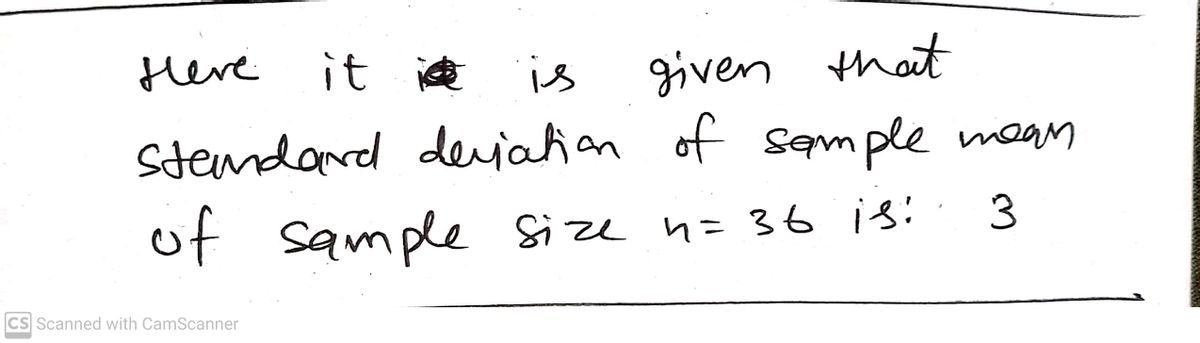 Here it is given that
standard deviation of sample mean
of sample size n = 36 is: 3
CS Scanned with CamScanner